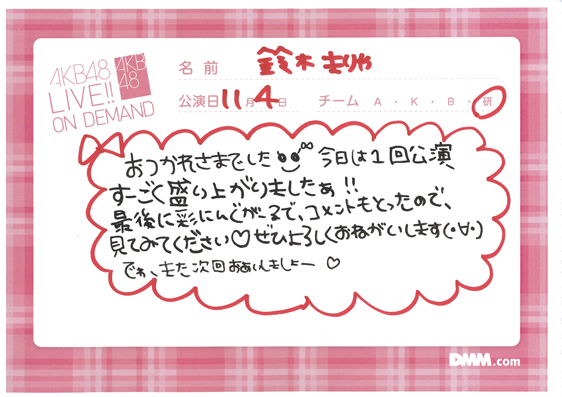 AKB48
LIVE!!
ON DEMAND
AKB
48
名前 鈴木まりや
公演日 11月4日 チーム A・K・B・研
おつかれさまでした 今日は1回公演
すーごく盛り上がりましたぁ!!
最後に彩にんどがーるで、コメントもとったので、
見てみてください♡ぜひよろしくおねがいします(・∀・)
でゎ、また次回おあいしましょー ♡
DMM.com